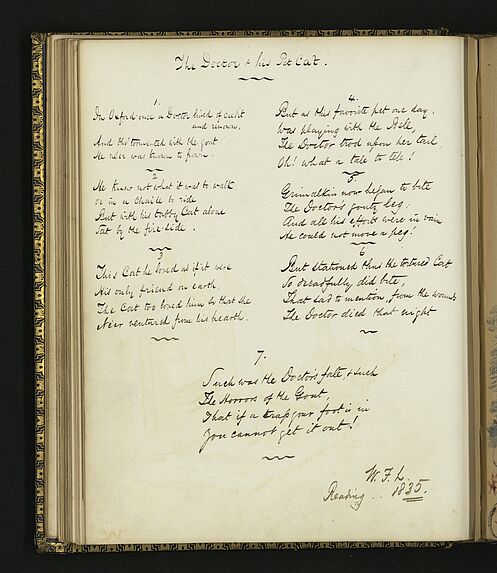 The Doctor & his Pet Cat.
1
In Oxford once a Doctor lived of credit
and renown,
And tho' tormented with the gout
He ne'er was known to frown.
2
He knew not what it was to walk
or in a Chaise to ride
But with his tabby Cat alone
Sat by the fire-side.
3
This Cat he loved as if it were
His only friend on earth,
The Cat too loved him tho' that she
Ne'er ventured from his hearth.
4.
But as this favorite pet one day,
Was playing with the Ball,
The Doctor trod upon her tail,
Oh! what a tale to tell!
5.
Grimalkin now began to bite
The Doctor's gouty leg;
And all his efforts were in vain
He could not move a peg!
6
But stationed thus the tortured Cat
So dreadfully did bite,
That sad to mention, from the wounds
The Doctor died that night
7.
Such was the Doctor's fate, & such
The Horrors of the Gout,
That if a trap your foot is in
You cannot get it out!
W. F. L.
Reading .. 1835.